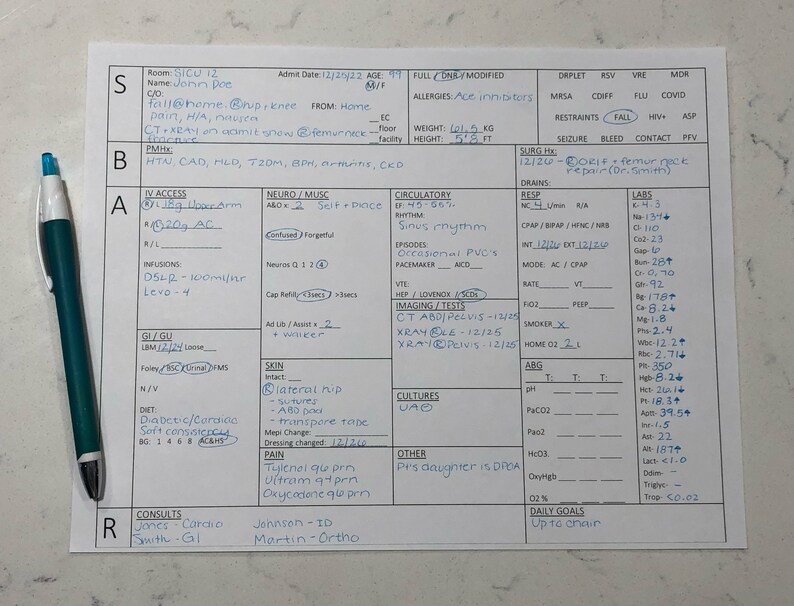 S
Room: SICU 12
Admit Date: 12/25/22 AGE: 99
Name: John Doe
M/F
C/O:
fall @ home. R hip + knee
FROM: Home
pain, H/A, nausea
__ EC
CT + XRAY on admit show R femur neck
__floor
fracture
__facility
FULL / DNR / MODIFIED
ALLERGIES: Ace inhibitors
WEIGHT: 61.5 KG
HEIGHT: 5'8 FT
DRPLET RSV VRE MDR
MRSA CDIFF FLU COVID
RESTRAINTS FALL HIV+ ASP
SEIZURE BLEED CONTACT PFV
B
PMHx:
HTN, CAD, HLD, T2DM, BPH, arthritis, CKD
SURG Hx:
12/26 - R ORIF + femur neck
repair (Dr. Smith)
DRAINS:
A
IV ACCESS
R/ L 18g Upper Arm
R / L 20g AC
R / L
INFUSIONS:
D5LR - 100ml/hr
Levo - 4
GI / GU
LBM 12/24 Loose__
Foley / BSC / Urinal / FMS
N / V
DIET:
Diabetic/Cardiac
Soft consistency
BG: 1 4 6 8 AC&HS
NEURO / MUSC
A&O x: 2 Self + Place
Confused / Forgetful
Neuros Q 1 2 4
Cap Refill: <3secs / >3secs
Ad Lib / Assist x 2
+ walker
SKIN
Intact: __
R lateral hip
- sutures
- ABD pad
- transpore tape
Mepi Change:
Dressing changed: 12/26
PAIN
Tylenol q6 prn
Ultram q4 prn
Oxycodone q6 prn
CIRCULATORY
EF: 45-55%
RHYTHM:
Sinus rhythm
EPISODES:
Occasional PVC's
PACEMAKER __ AICD__
VTE:
HEP / LOVENOX / SCDs
IMAGING / TESTS
CT ABD/PELVIS - 12/25
XRAY R LE - 12/25
XRAY R Pelvis - 12/25
CULTURES
UA ⊖
OTHER
Pt's daughter is DPOA
RESP
NC 4 L/min R/A
CPAP / BIPAP / HFNC / NRB
INT 12/26 EXT 12/26
MODE: AC / CPAP
RATE______ VT______
FiO2______ PEEP______
SMOKER x
HOME O2 2 L
ABG
T: T: T:
pH
PaCO2
Pao2
HCO3.
OxyHgb
O2 %
LABS
K- 4.3
Na- 134↓
Cl- 110
Co2- 23
Gap- 6
Bun- 28↑
Cr- 0.70
Gfr- 92
Bg- 178↑
Ca- 8.2↓
Mg- 1.8
Phs- 2.4
Wbc- 12.2↑
Rbc- 2.71↓
Plt- 350
Hgb- 8.2↓
Hct- 26.1↓
Pt- 18.3↑
Aptt- 39.5↑
Inr- 1.5
Ast- 22
Alt- 187↑
Lact- <1.0
Ddim- -
Triglyc- -
Trop- <0.02
R
CONSULTS
Jones - Cardio Johnson - ID
Smith - GI Martin - Ortho
DAILY GOALS
Up to chair